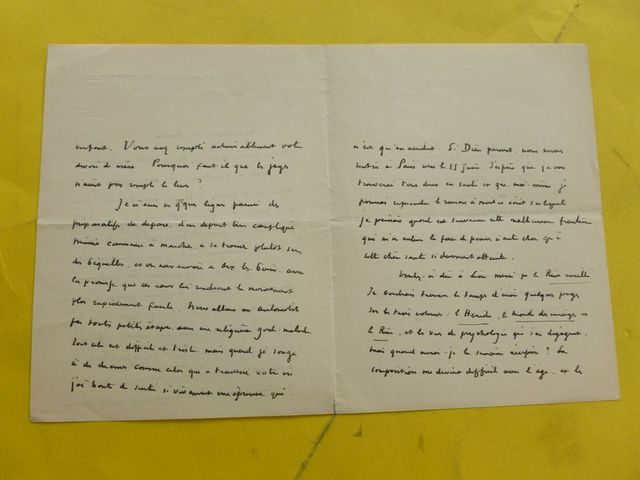 enfant. Vous avez rempli admirablement votre
devoir de mère. Pourquoi faut il que les juges
n'aient pas rempli le leur ?
Je vous écris ces qques lignes parmi des
préparatifs de départ, d'un départ très compliqué.
commence à marcher, à se trainer plutôt sur
des béquilles, et on nous envoie à Aix les Bains, avec
la promesse que ces eaux lui rendront le mouvement
plus rapidement facile. Nous allons en automobile
par toutes petites étapes avec une religieuse garde-malade
Tout cela est difficile et triste mais quand je songe
à des drames comme celui qui a traversé votre vie
j'ai honte de sentir si vivement une épreuve qui
n'est qu'un accident. Si Dieu permet, nous serons
rentrés à Paris vers le 15 juin. J'espère que je vous
trouverai tous deux en santé et que moi-même je
pourrai reprendre le roman à moitié écrit sur lequel
je peinais quand est survenue cette malheureuse fracture
qui m'a enlevé la force de penser à autre chose qu'à
cette chère santé si durement atteinte.
Veuillez dire à Léon merci pour le
Je voudrais trouver le temps d'écrire quelques pages
sur les trois volumes, l'Hérédo, le monde des images et
le Rêve, et les vues de psychologie qui s'en dégagent.
Mais quand aurai-je le
composition me devient difficile avec l'âge, et la